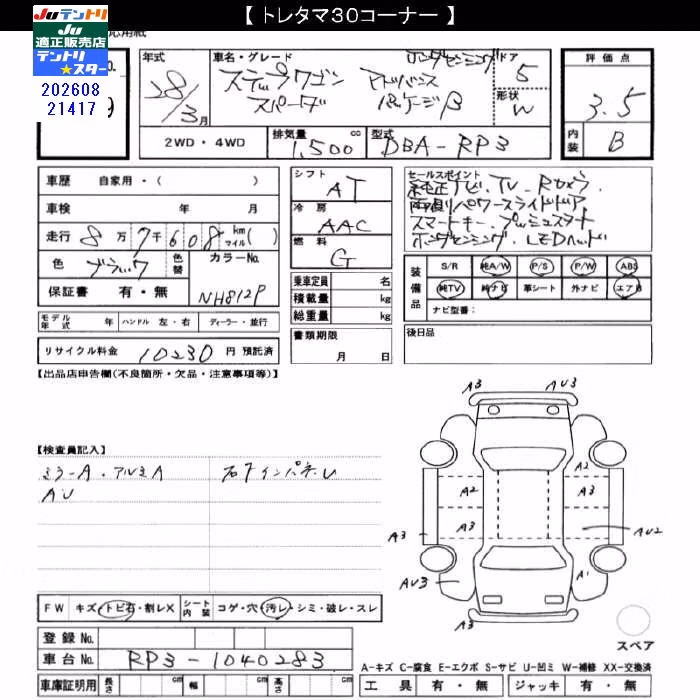 【 トレタマ30コーナー 】
JUテントリ
JU
適正販売店
テントリ
★スター
202608
21417
年式
28/3月
車名・グレード
ホンダセンシング
ステップワゴン アドバンス
スパーダ パッケージβ
ドア
5
形状
W
評価点
3.5
内装
B
2WD・4WD
排気量
1,500 cc
型式
DBA-RP3
車歴 自家用・( )
車検 年 月
走行 8万7千608 km マイル( )
色 ブラック
色替
カラーNo.
NH812P
保証書 有・無
モデル年式 年 ハンドル 左・右 ディーラー・並行
リサイクル料金 10230 円 預託済
シフト
AT
冷房
AAC
燃料
G
乗車定員 名
積載量 kg
総重量 kg
書類期限
月 日
セールスポイント
純正ナビ.TV.Rカメラ.
両側パワースライドドア
スマートキー.プッシュスタート
ホンダセンシング.LEDヘッド
装備品
S/R 純A/W P/S P/W ABS
純TV 純ナビ 革シート 外ナビ エアB
ナビ型番:
後日品
【出品店申告欄(不良箇所・欠品・注意事項等)】
【検査員記入】
ミラーA.アルミA
AU
コアインパネU
A3
AU3
A2
A2
A3
A3
A3
AU2
AU3
A1
A3
スペア
FW キズ・トビ石・割レX
シート内装 コゲ・穴・汚レ・シミ・破レ・スレ
登録No.
車台No. RP3-1040283
車庫証明用 長さ cm 幅 cm 高さ cm
A-キズ C-腐食 E-エクボ S-サビ U-凹ミ W-補修 XX-交換済
工具 有・無 ジャッキ 有・無